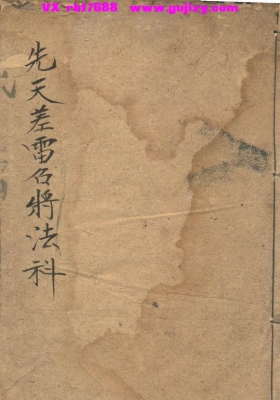 VX-rsf7688  www.gujizy.com
先天差雷召將法科